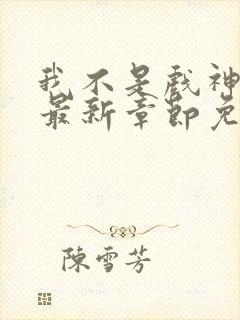 我不是戲神
最新章節免
陳雪芳